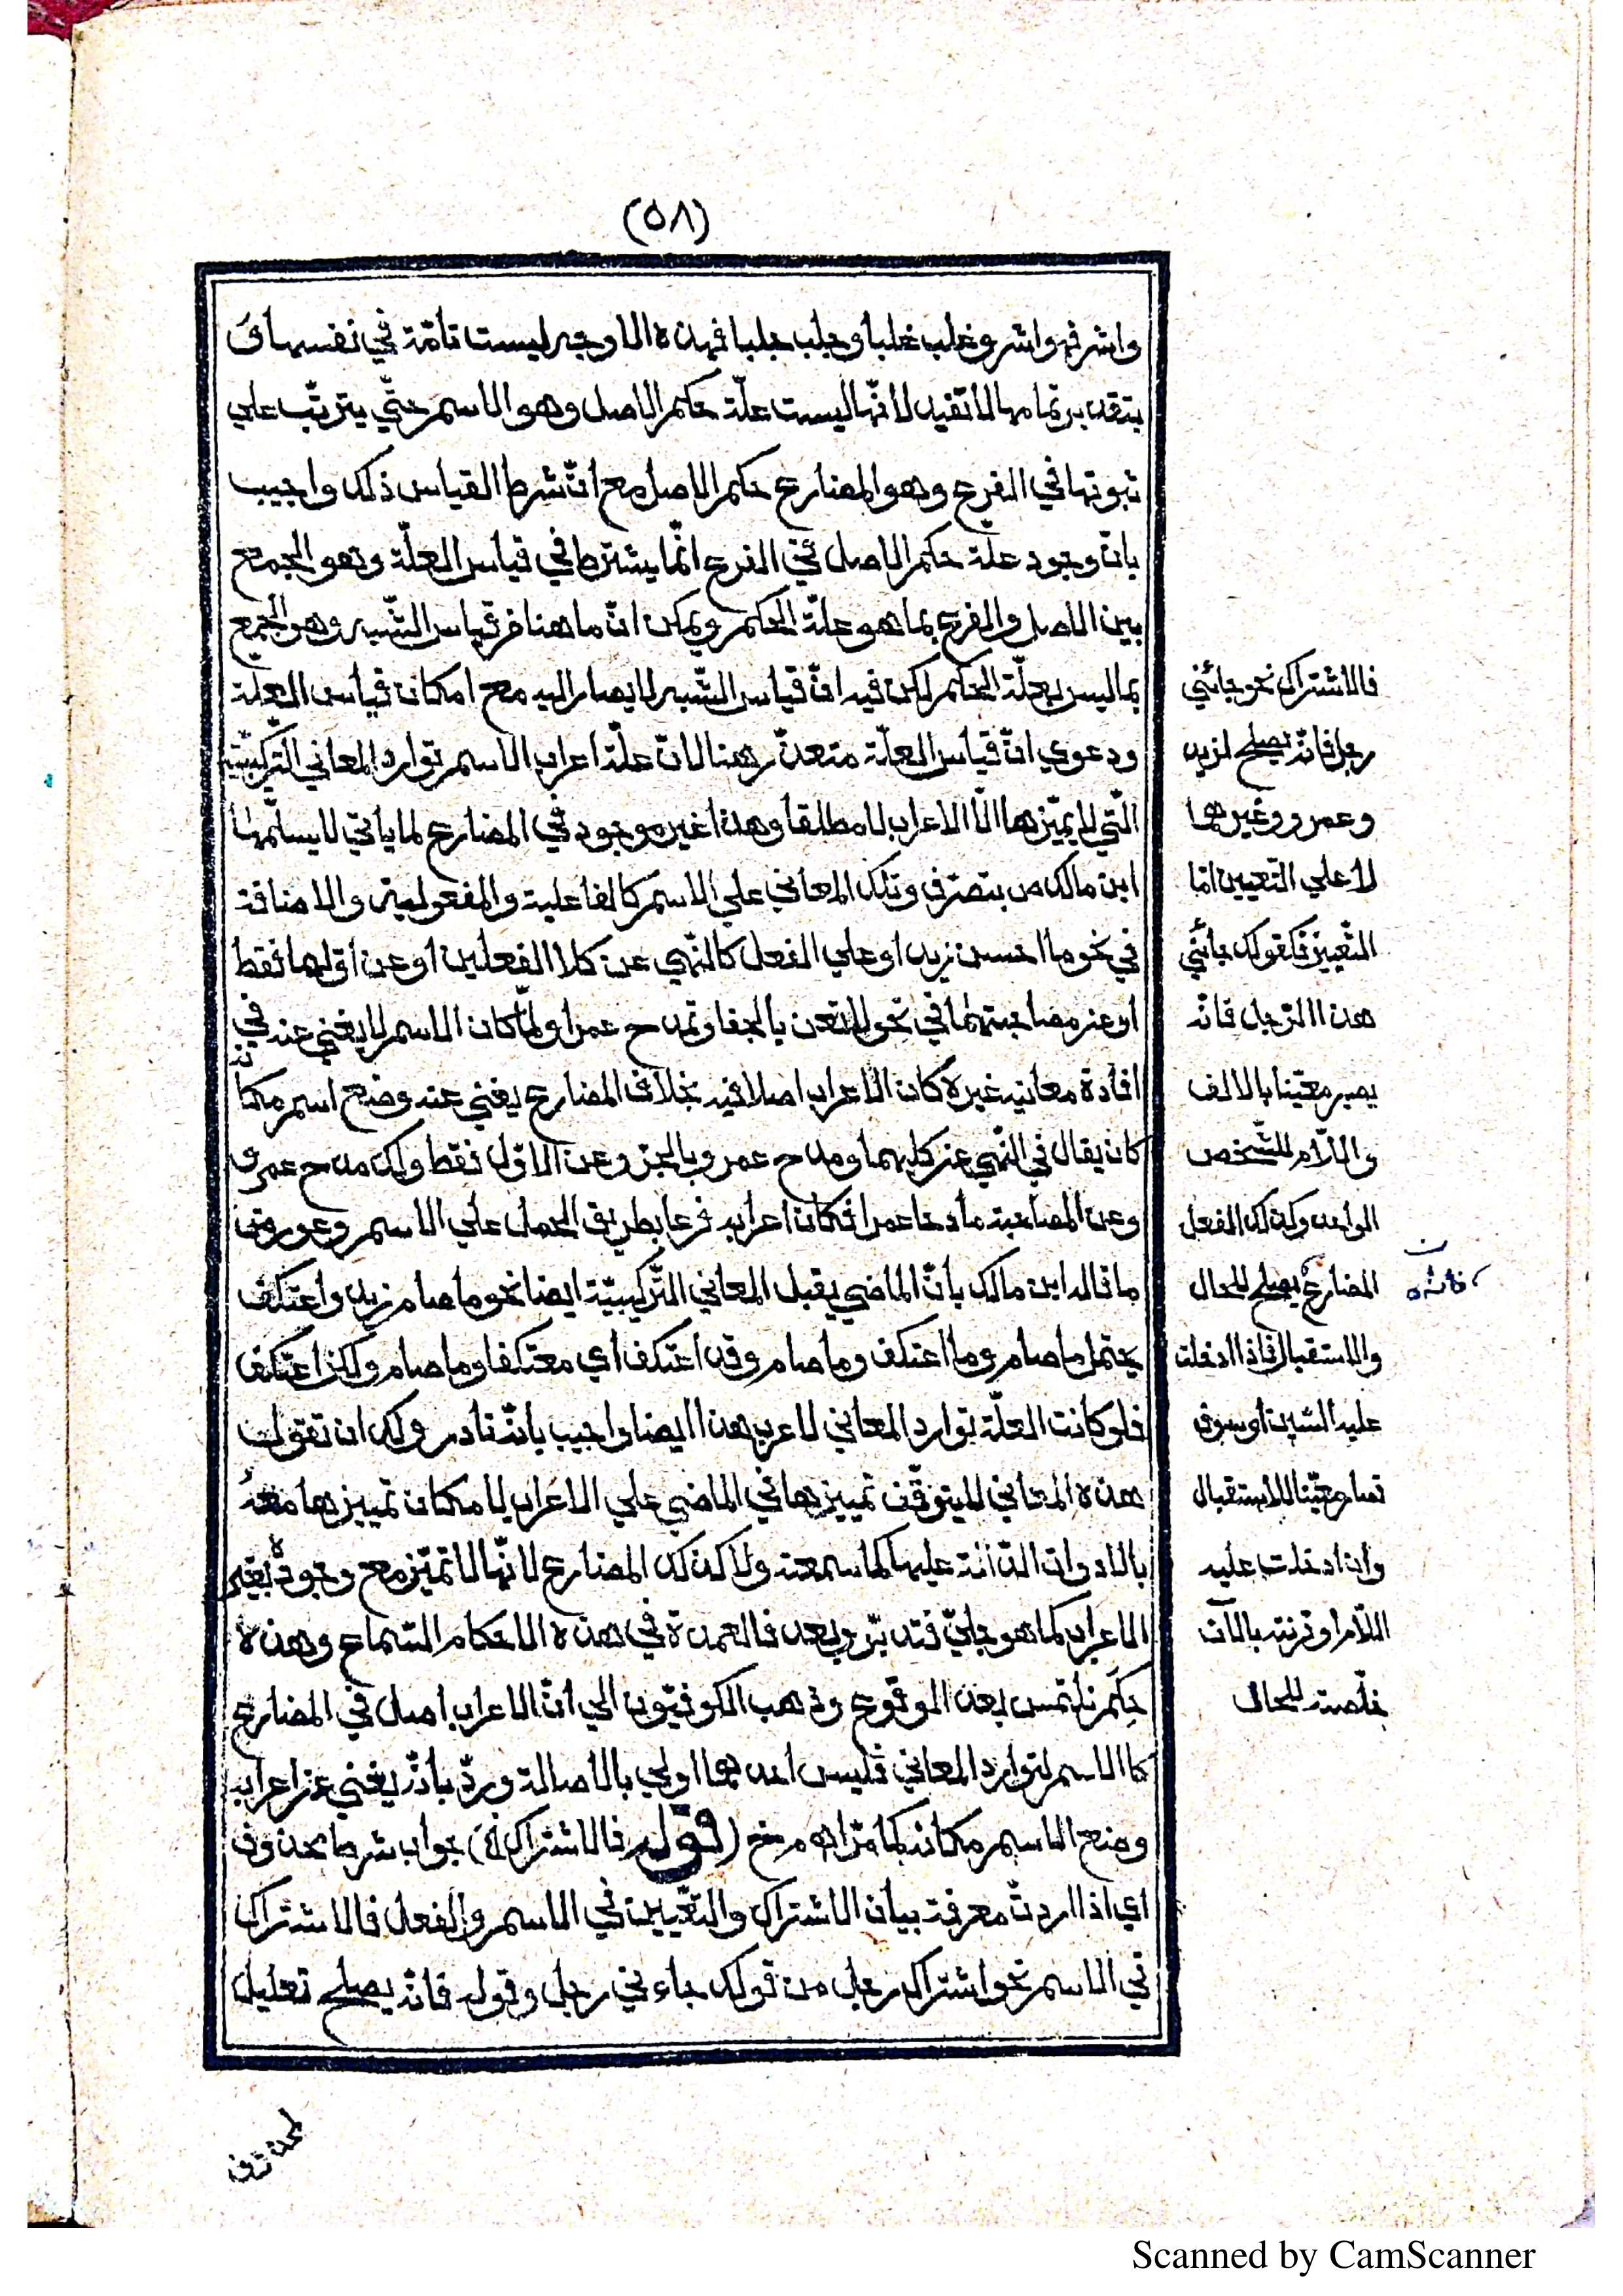 (٥٨)
واشرف واشر وغلب غلبا وجلب جلبا فهذه الاوجه ليست تامّة في نفسها و
بتقدير تمامها لا تفيد لانّها ليست علّة حكم الاصل وهو الاسم حتّي يترتّب علي
ثبوتها في الفرع وهو المضارع حكم الاصل مع انّ شرط القياس ذلك واجيب
بانّ وجود علة حكم الاصل في الفرع انّما يشترط في قياس العلّة وهو الجمع
بين الاصل والفرع بما هو علّة الحكم ويمكن انّ ما هنا من قياس الشّبه وهو الجمع
بما ليس بعلّة الحكم لكن فيه انّ قياس الشّبه لا يصار اليه مع امكان قياس العلّة
ودعوي انّ قياس العلّة متعذّر هنا لانّ علّة اعراب الاسم توارد المعاني التّركيبيّة
الّتي لا يميّزها الّا الاعراب لا مطلقا وهذا غير موجود في المضارع لما ياتي لا يسلّمها
ابن مالك من بتصرف وتلك المعاني علي الاسم كالفاعلية والمفعولية والاضافة
في نحو ما احسن زيد او علي الفعل كالنّهي عن كلا الفعلين او عن اوّلهما فقط
او عن مصاحبتهما في نحو لا تعن بالجفا وتمدح عمرا ولمّا كان الاسم لا يغني عنه في
افادة معانيه غيره كان الاعراب اصلا فيه بخلاف المضارع يغني عنه وضع اسم مكانه
كان يقال في النّهي عن كليهما ومدح عمرو بالجرّ وعن الاوّل فقط ولك مدح عمرو
وعن المصاحبة مادحا عمرا فكان اعرابه فرعا بطريق الحمل علي الاسم وعورض
ما قاله ابن مالك بانّ الماضي يقبل المعاني التّركيبيّة ايضا نحو ما صام زيد واعتكف
يحتمل ما صام وما اعتكف وما صام وقد اعتكف اي معتكفا وما صام ولكن اعتكف
فلو كانت العلّة توارد المعاني لاعرب هذا ايضا واجيب بانّه نادر ولك ان تقول
هذه المعاني لا يتوقّف تمييزها في الماضي علي الاعراب لامكان تمييزها معه
بالادوات الدّالّة عليها كما سمعته ولا كذلك المضارع لانّها لا تميّز مع وجوده بغير
الاعراب كما هو جليّ فتدبّر وبعد فالعمدة في هذه الاحكام السّماع وهذه
حِكَم تلتمس بعد الوقوع وذهب الكوفيّون الي انّ الاعراب اصل في المضارع
كالاسم لتوارد المعاني فليس احدهما اولي بالاصالة وردّ بانّه يغني عن اعرابه
وضع الاسم مكانه كما مرّ اه مرخ (قوله فالاشتراك الخ) جواب شرط محذوف
اي اذا اردت معرفة بيان الاشتراك والتّعيين في الاسم والفعل فالاشتراك
في الاسم نحو اشتراك رجل من قولك جاءني رجل وقوله فانّه يصلح تعليل
فالاشتراك نحو جائني
رجل فانّه يصلح لزيد
وعمرو وغيرهما
لا علي التّعيين امّا
التّعيين فكقولك جائني
هذا الرّجل فانّه
يصير معيّنا بالالف
واللّام للشّخص
الواحد وكذلك الفعل
المضارع يصلح للحال
والاستقبال فاذا ادخلت
عليه السّين او سوف
تصار معيّنا للاستقبال
وان ادخلت عليه
اللّام او قرنته بالآن
خلّصته للحال
لمحذوف
Scanned by CamScanner